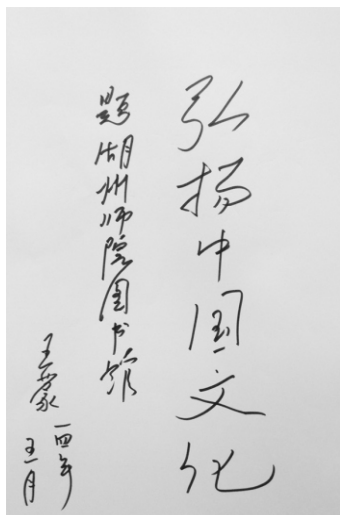 弘扬中国文化
题湖州师院图书馆
王蒙
一四年
五月